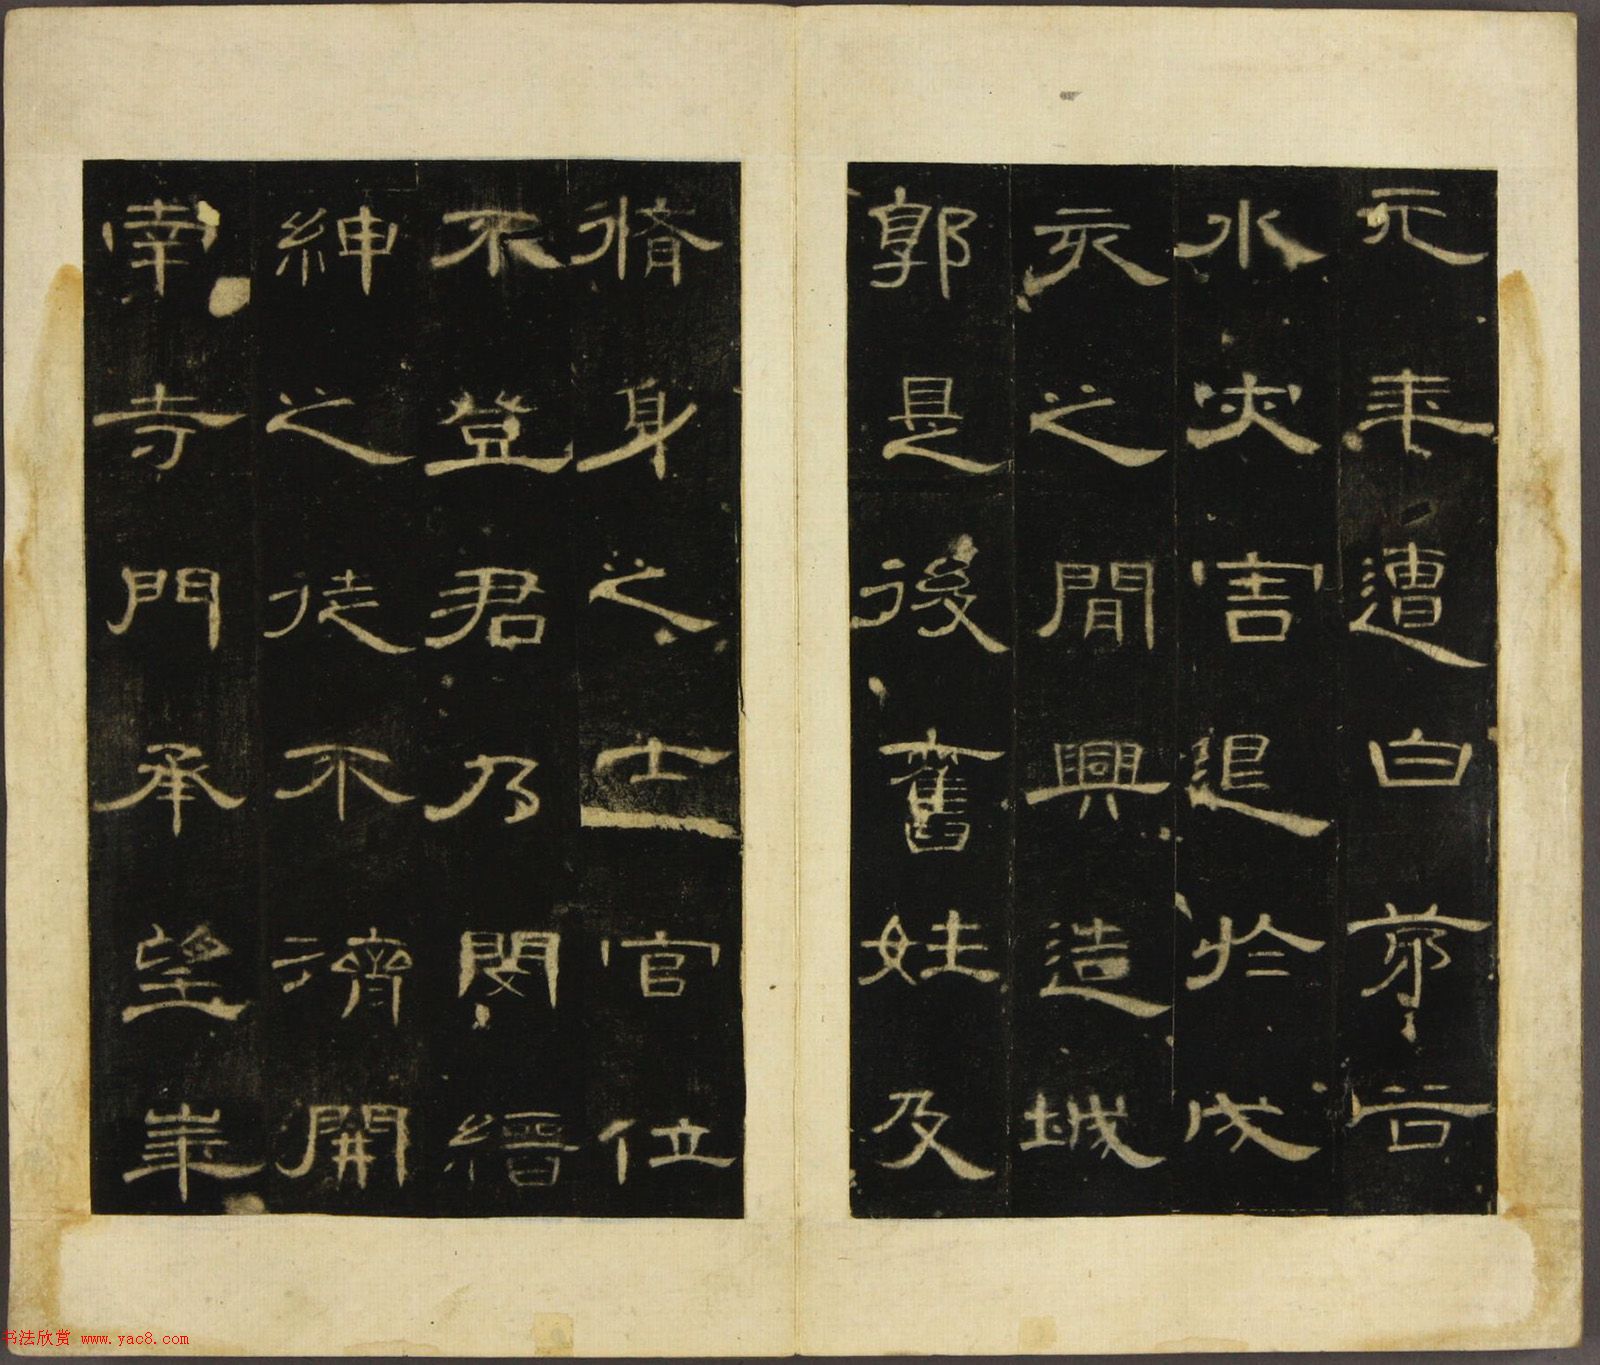 元年遭白茅谷
水灾害退於戌
亥之閒興造城
郭是後舊姓及
脩身之士官位
不登君乃閔縉
紳之徒不濟開
南寺門承望華
书法欣赏 www.yac8.com